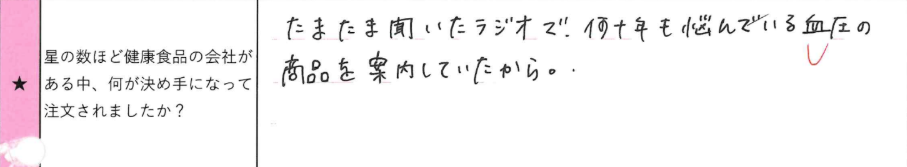 ★
星の数ほど健康食品の会社が
ある中、何が決め手になって
注文されましたか？
たまたま聞いたラジオで、何十年も悩んでいる血圧の
商品を案内していたから。